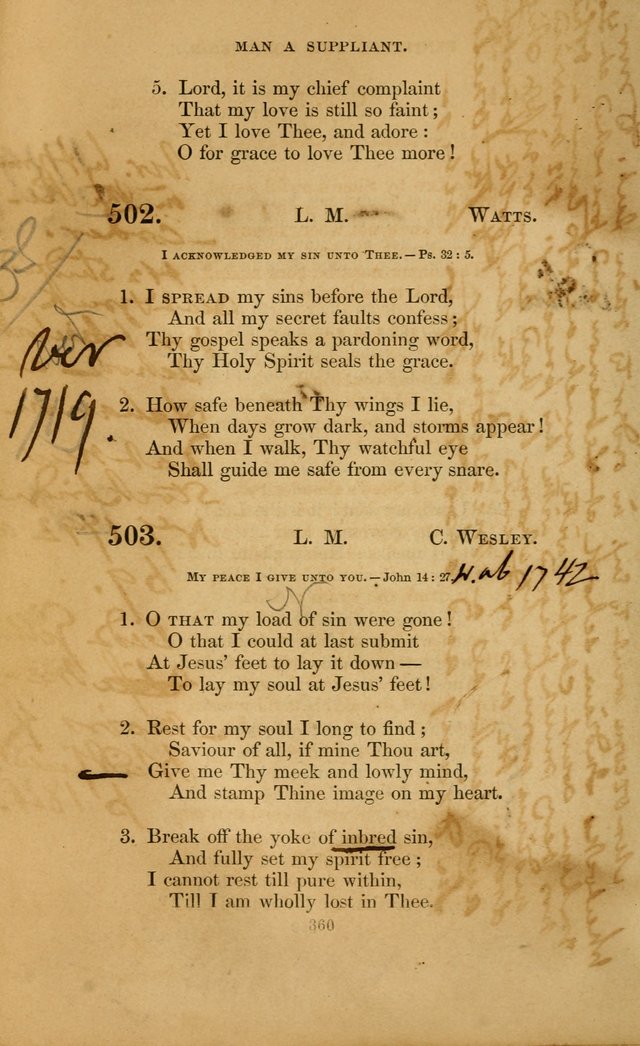 MAN A SUPPLIANT.
5. Lord, it is my chief complaint
That my love is still so faint;
Yet I love Thee, and adore:
O for grace to love Thee more!
502. L. M. WATTS.
I ACKNOWLEDGED MY SIN UNTO THEE. — Ps. 32 : 5.
1. I SPREAD my sins before the Lord,
And all my secret faults confess;
Thy gospel speaks a pardoning word,
Thy Holy Spirit seals the grace.
1719.
2. How safe beneath Thy wings I lie,
When days grow dark, and storms appear!
And when I walk, Thy watchful eye
Shall guide me safe from every snare.
503. L. M. C. WESLEY.
MY PEACE I GIVE UNTO YOU. — John 14 : 27.
1742
1. O THAT my load of sin were gone!
O that I could at last submit
At Jesus' feet to lay it down —
To lay my soul at Jesus' feet!
2. Rest for my soul I long to find;
Saviour of all, if mine Thou art,
Give me Thy meek and lowly mind,
And stamp Thine image on my heart.
3. Break off the yoke of inbred sin,
And fully set my spirit free;
I cannot rest till pure within,
Till I am wholly lost in Thee.
360